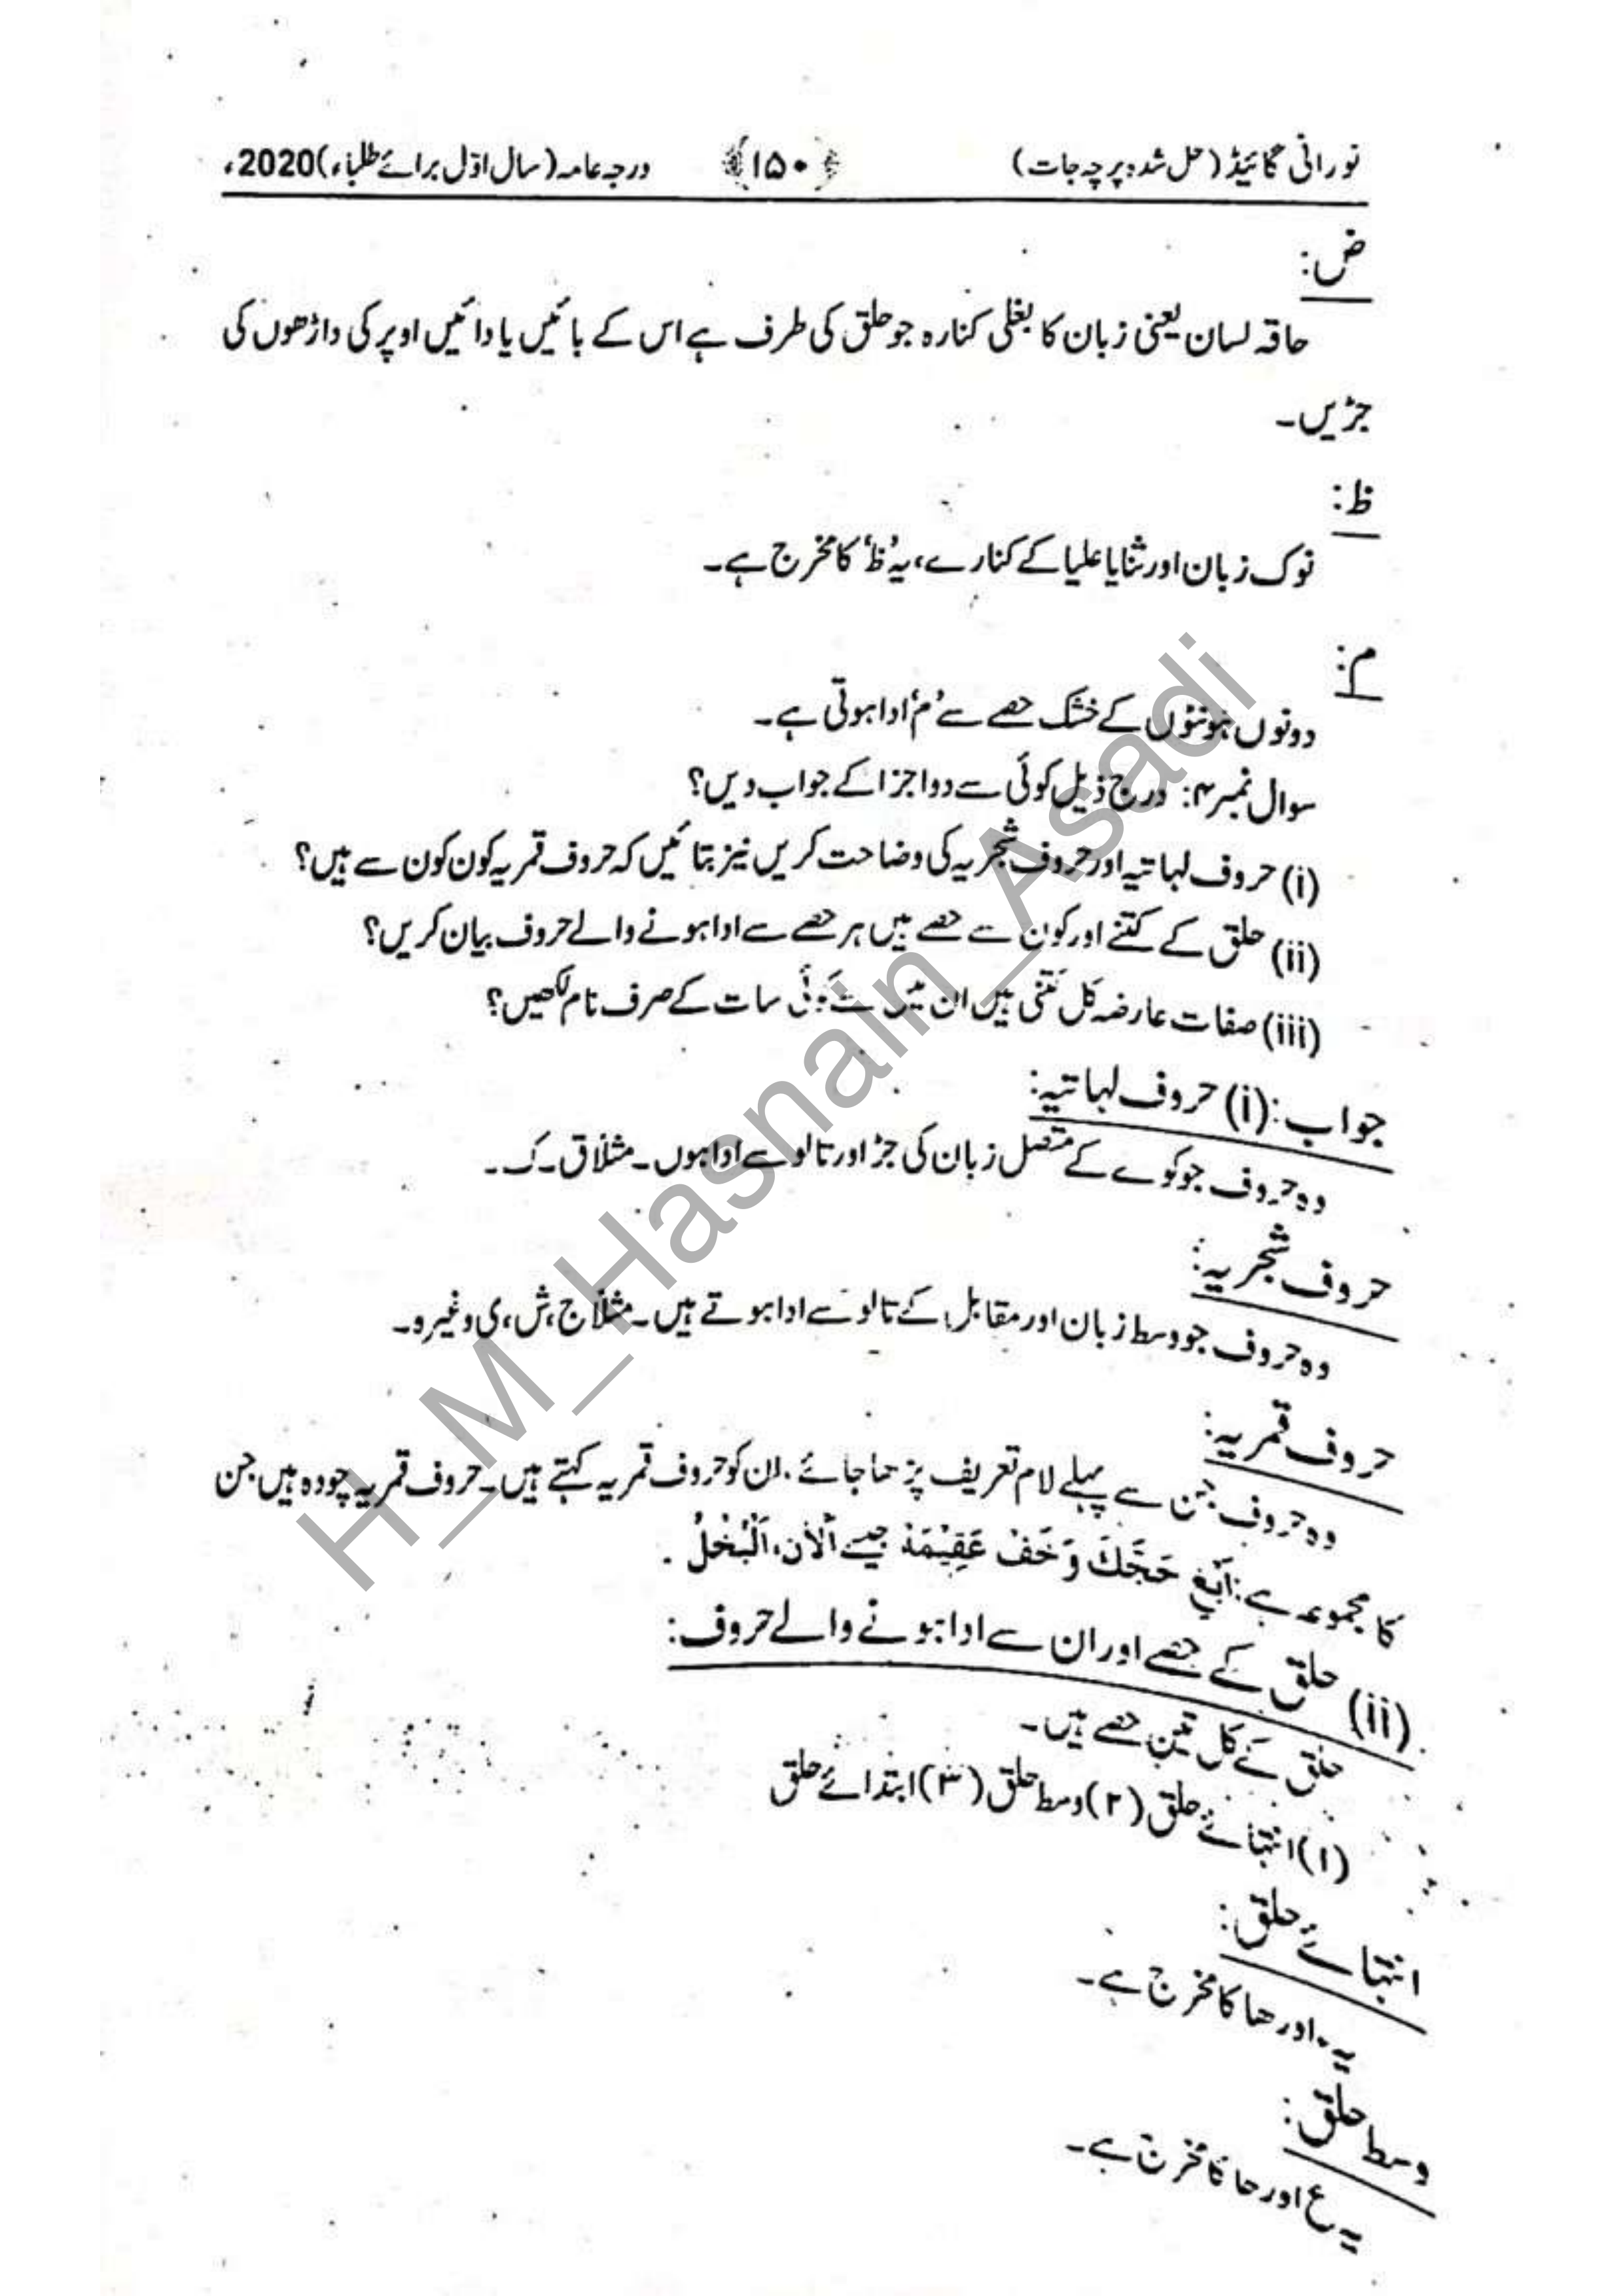 نورانی گائیڈ (حل شدہ پرچہ جات) ﴿۱۵۰﴾ درجہ عامہ (سال اوّل برائے طلباء) 2020ء
ض:
حاقہ لسان یعنی زبان کا بغلی کنارہ جو حلق کی طرف ہے اس کے بائیں یا دائیں اوپر کی داڑھوں کی
جڑیں۔
ظ:
نوک زبان اور ثنایا علیا کے کنارے، یہ 'ظ' کا مخرج ہے۔
م:
دونوں ہونٹوں کے خشک حصے سے 'م' ادا ہوتی ہے۔
سوال نمبر ۴: درج ذیل کوئی سے دو اجزا کے جواب دیں؟
(i) حروف لہاتیہ اور حروف شجریہ کی وضاحت کریں نیز بتائیں کہ حروف قمریہ کون کون سے ہیں؟
(ii) حلق کے کتنے اور کون سے حصے ہیں ہر حصے سے ادا ہونے والے حروف بیان کریں؟
(iii) صفات عارضہ کل کتنی ہیں ان میں سے کوئی سات کے صرف نام لکھیں؟
جواب: (i) حروف لہاتیہ:
وہ حروف جو کوے کے متصل زبان کی جڑ اور تالو سے ادا ہوں۔ مثلاً ق۔ ک۔
حروف شجریہ:
وہ حروف جو وسط زبان اور مقابل کے تالو سے ادا ہوتے ہیں۔ مثلاً ج، ش، ی وغیرہ۔
حروف قمریہ:
وہ حروف جن سے پہلے لام تعریف پڑھا جائے، ان کو حروف قمریہ کہتے ہیں۔ حروف قمریہ چودہ ہیں جن
کا مجموعہ ہے: اَبْغِ حَجَّكَ وَ خَفْ عَقِيْمَهٗ جیسے اَلْاٰن، اَلْبُخْلُ .
(ii) حلق کے حصے اور ان سے ادا ہونے والے حروف:
حلق کے کل تین حصے ہیں۔
(۱) انتہائے حلق (۲) وسط حلق (۳) ابتدائے حلق
انتہائے حلق:
یہ ء اور ھا کا مخرج ہے۔
وسط حلق:
یہ ع اور حا کا مخرج ہے۔
H_M_Hasnain_Asadi